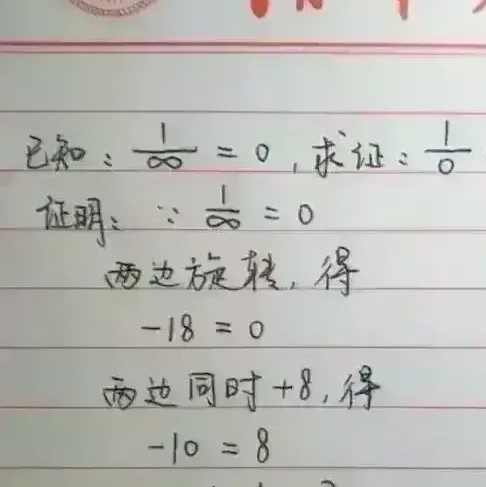 已知：1/∞ = 0，求证：1/0
证明：∵ 1/∞ = 0
两边旋转，得
-18 = 0
两边同时+8，得
-10 = 8